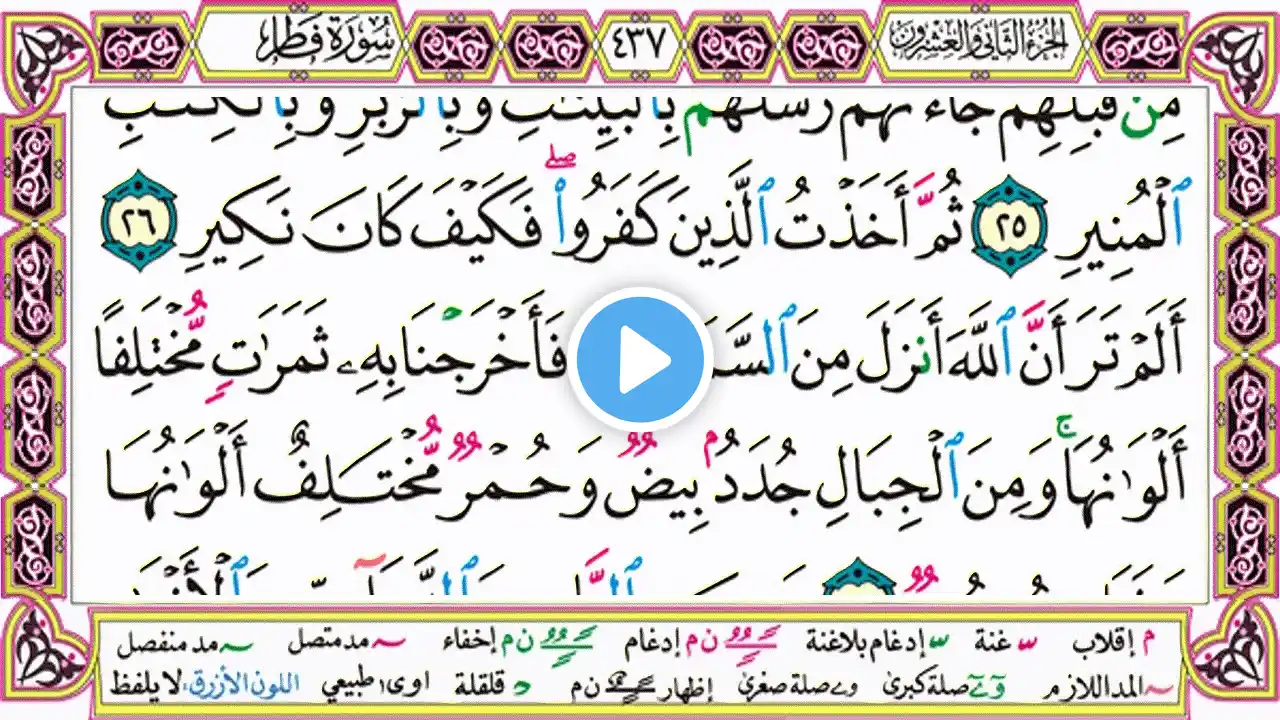 سورة فاطر ٤٣٧ الجزء الثاني والعشرون
مِن قَبْلِهِمْ جَاءَتْهُمْ رُسُلُهُم بِٱلْبَيِّنَٰتِ وَبِٱلزُّبُرِ وَبِٱلْكِتَٰبِ
ٱلْمُنِيرِ ٢٥ ثُمَّ أَخَذْتُ ٱلَّذِينَ كَفَرُوا۟ ۖ فَكَيْفَ كَانَ نَكِيرِ ٢٦
أَلَمْ تَرَ أَنَّ ٱللَّهَ أَنزَلَ مِنَ ٱلسَّ فَأَخْرَجْنَا بِهِۦ ثَمَرَٰتٍ مُّخْتَلِفًا
أَلْوَٰنُهَا ۚ وَمِنَ ٱلْجِبَالِ جُدَدٌۢ بِيضٌ وَحُمْرٌ مُّخْتَلِفٌ أَلْوَٰنُهَا
م إقلاب غنة إدغام بلاغنة ن م إدغام ن م إخفاء مد متصل مد منفصل
المد اللازم صلة كبرى و ے صلة صغرى إظهار ن م قلقلة اوى طبيعي اللون الأزرق: لا يلفظ